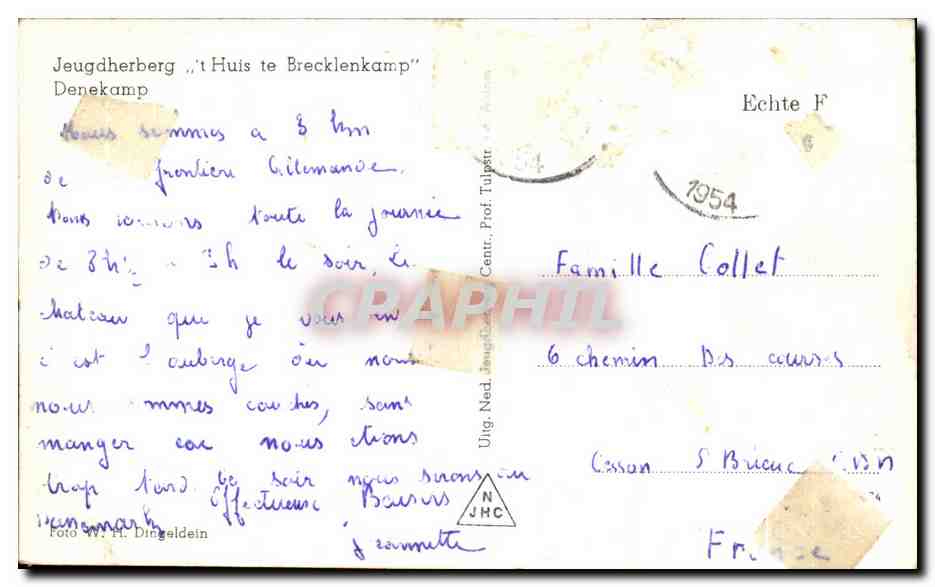 Jeugdherberg „'t Huis te Brecklenkamp"
Denekamp
Echte F
Nous sommes a 3 km
de frontière Allemande.
Nous toute la journée
de 8h½ h le soir. Le
chateau que je vous en
c'est l'auberge ou nous
nous mmes couches, sans
manger car nous etions
trop tard. Ce soir nous serons au
Danemark
Affectueux Baisers
Jeannette
Foto W. H. Dingeldein
Uitg. Ned. Jeugd Centr., Prof. Tulpstr.
N
JHC
54
1954
Famille Collet
6 chemin Des courses
Cesson St Brieuc C.D.N
France
CPAPHIL